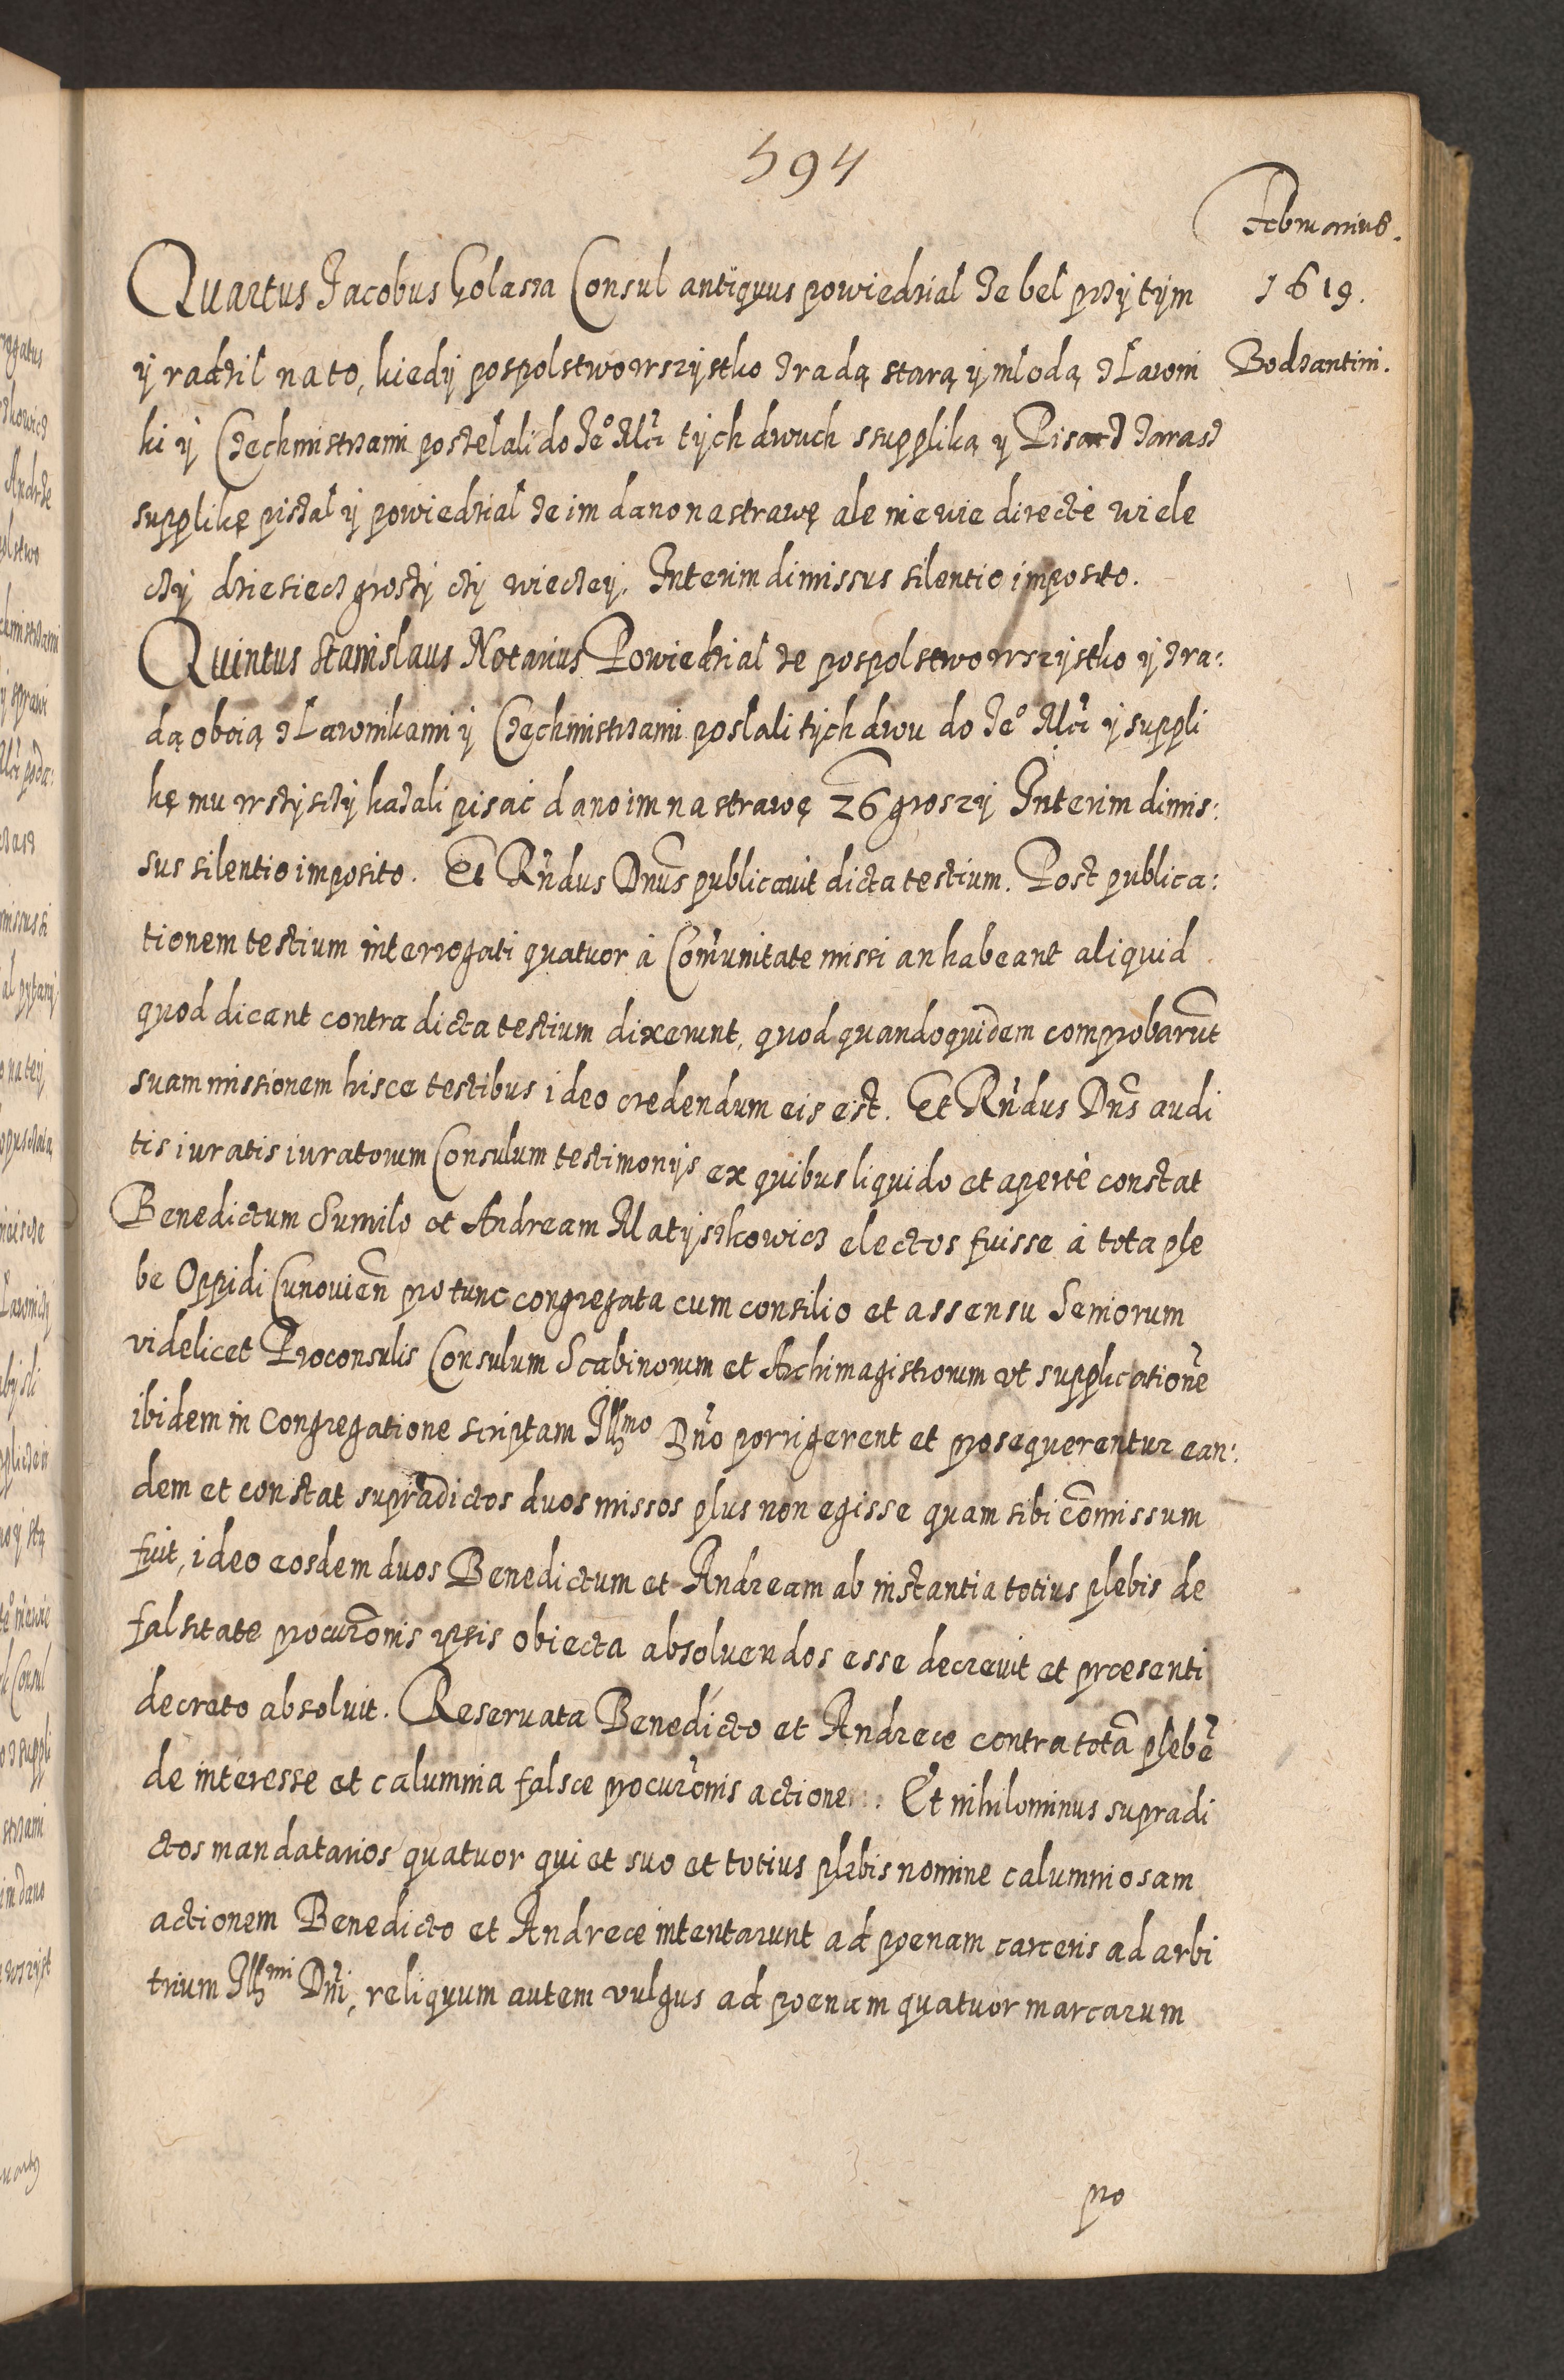 594
Februarius.
1619.
Bodzantini.
Quartus Jacobus Golasza Consul antiquus powiedzial ze bel przÿ tÿm
ÿ radził na to, kiedÿ pospolstwo wszÿstko z radą starą ÿ mlodą z Ławni
ki ÿ Czechmistrzami poszelali do Je° Mći tÿch dwuch ssuppliką ÿ Pisarz zaraz
supplikę piszał ÿ powiedział ze im dano na strawę ale nie wie directè wiele
czÿ dziesiecz groszÿ czÿ wieczeÿ. Interim dimissus silentio imposito.
Quintus Stanislaus Notarius Powiedział ze pospolstwo wszÿstko ÿ z ra:
dą oboią z Ławnikami ÿ Czechmistrzami poslali tÿch dwu do Je° Mći ÿ suppli
kę mu wszÿsczÿ kazali pisać dano im na strawę 26 groszÿ Interim dimis:
sus silentio imposito. Et Rndus Dnus publicauit dicta testium. Post publica:
tionem testium interrogati quatuor à Com̃unitate missi an habeant aliquid
quod dicant contra dicta testium dixerunt, quod quandoquidem comprobarūt
suam missionem hisce testibus ideo credendum eis est. Et Rndus Dns audi
tis iuratis iuratorum Consulum testimonÿs ex quibus liquido et apertè constat
Benedictum Sumilo et Andream Matÿszkowicz electos fuisse à tota ple
be Oppidi Cunouien̄ pro tunc congregata cum consilio et assensu Seniorum
videlicet Proconsulis Consulum Scabinorum et Archimagistrorum vt supplicationē
ibidem in Congregatione scriptam Illmo Dno porrigerent et prosequerentur ean:
dem et constat supradictos duos missos plus non egisse quam sibi com̄issum
fuit, ideo eosdem duos Benedictum et Andream ab instantia totius plebis de
falsitate procurōnis ipsis obiecta absoluendos esse decreuit et præsenti
decreto absoluit. Reseruata Benedicto et Andreæ contra totā plebē
de interesse et calumnia falsæ procurōnis actione. Et nihilominus supradi
ctos mandatarios quatuor qui et suo et totius plebis nomine calumniosam
actionem Benedicto et Andreæ intentarunt ad poenam carceris ad arbi
trium Illmi Dni, reliquum autem vulgus ad poenam quatuor marcarum
pro